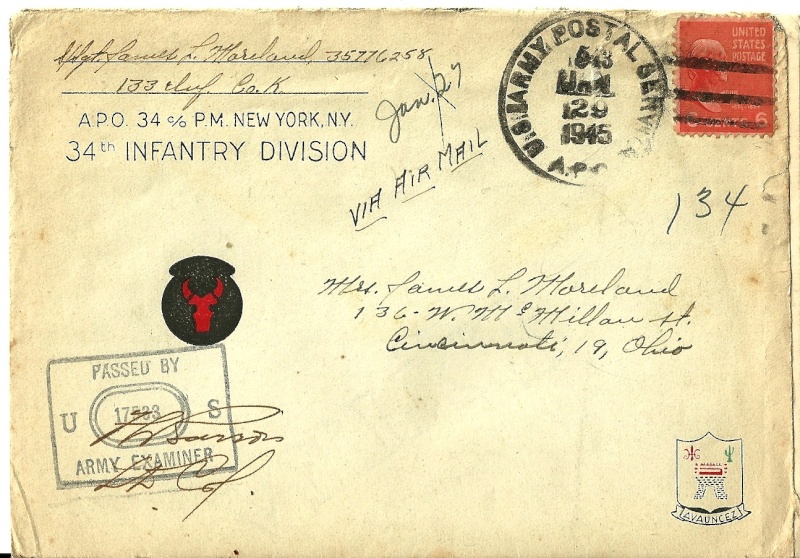 S/Sgt. James L. Moreland, 35776258
133 Inf. Co. K.
A.P.O. 34 c/o P.M. NEW YORK, N.Y.
34th INFANTRY DIVISION
Jan. 27
VIA AIR MAIL
U.S. ARMY POSTAL SERVICE
29
1945
A.P.O.
UNITED
STATES
POSTAGE
CENTS 6
134
Mrs. James L. Moreland
136-W. McMillan St.
Cincinnati, 19, Ohio
PASSED BY
U 17583 S
ARMY EXAMINER
AVAUNCEZ